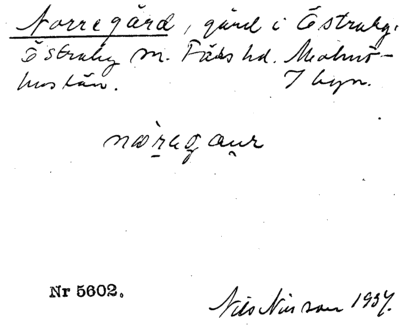 Norregård, gård i Östraby.
Östraby sn. Färs hd. Malmö-
hus län. I byn.
Nr 5602.
Nils Nilsson 1937.